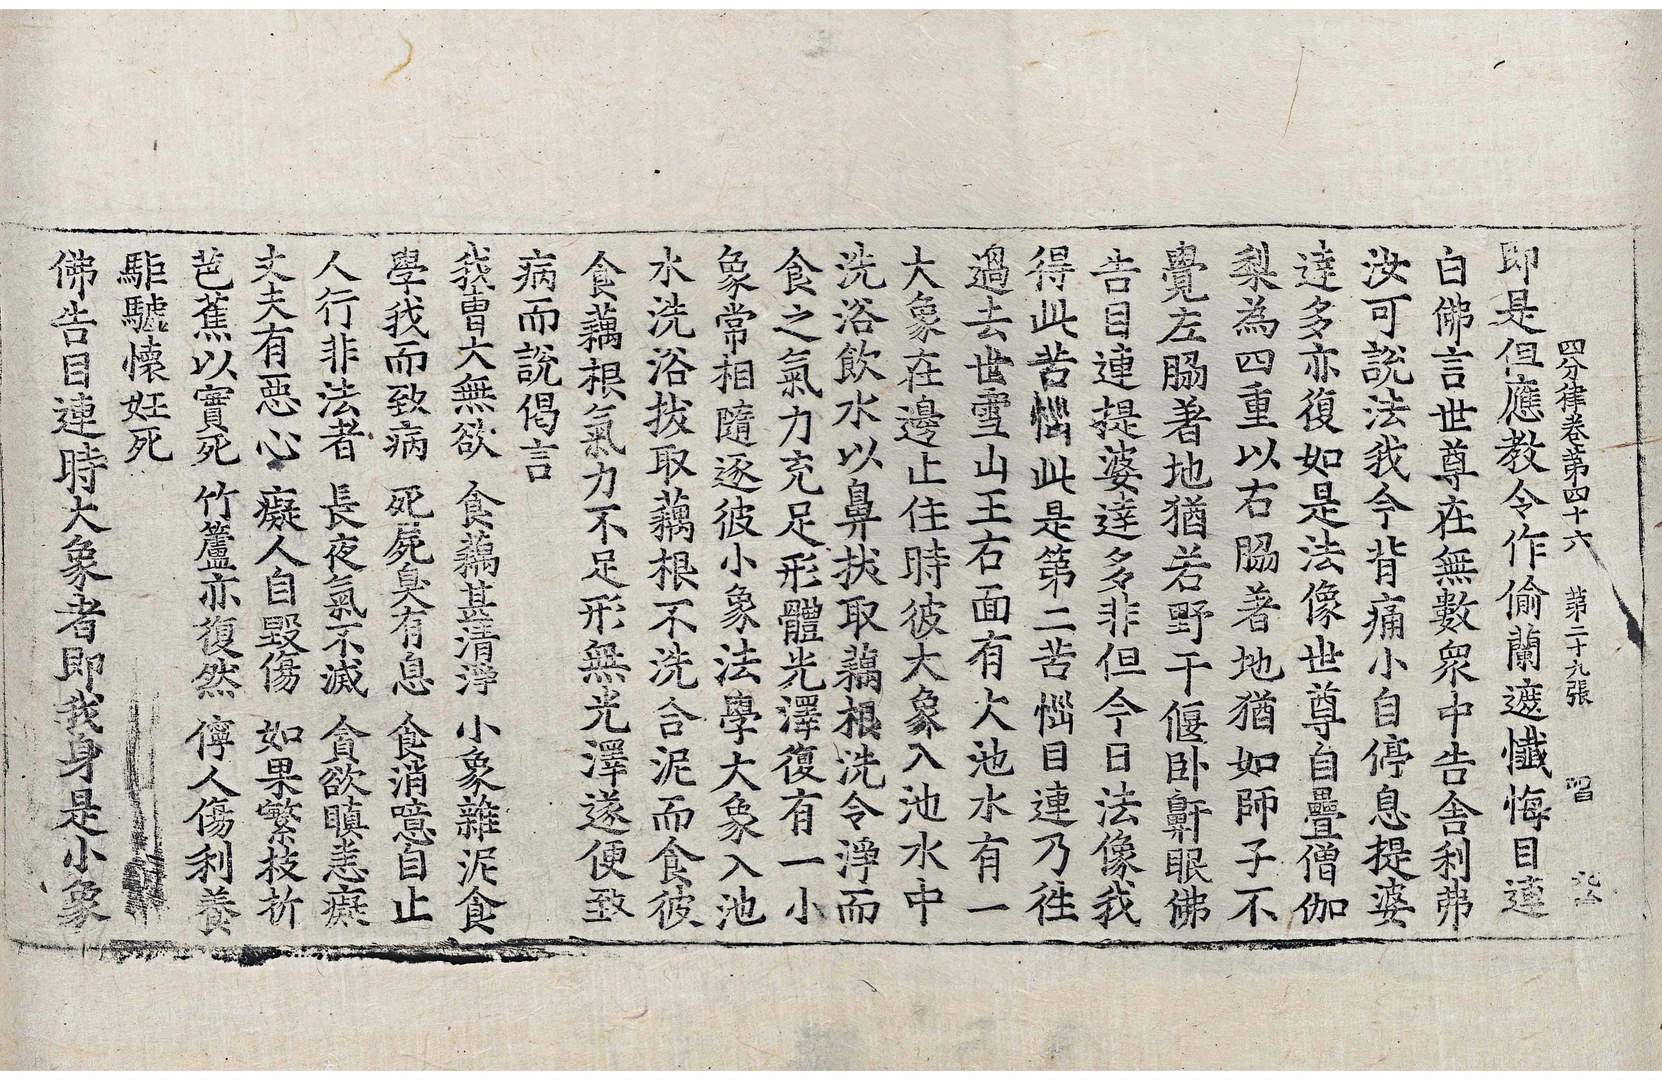 四分律卷第四十六 第二十九張
即是但應教令作偷蘭遮懺悔目連
白佛言世尊在無數衆中告舍利弗
汝可說法我今背痛小自停息提婆
達多亦復如是法像世尊自疊僧伽
梨為四重以右脇著地猶如師子不
覺左脇著地猶若野干偃卧鼾眠佛
告目連提婆達多非但今日法像我
得此苦惱此是第二苦惱目連乃徃
過去世雪山王右面有大池水有一
大象在邊止住時彼大象入池水中
洗浴飲水以鼻拔取藕根洗令淨而
食之氣力充足形體光澤復有一小
象常相隨逐彼小象法學大象入池
水洗浴拔取藕根不洗合泥而食彼
食藕根氣力不足形無光澤遂便致
病而說偈言
我曹大無欲 食藕甚清淨 小象雜泥食
學我而致病 死屍臭有息 食消噫自止
人行非法者 長夜氣不滅 貪欲瞋恚癡
丈夫有惡心 癡人自毀傷 如果繁枝折
芭蕉以實死 竹蘆亦復然 儜人傷利養
駏驉懷妊死
佛告目連時大象者即我身是小象